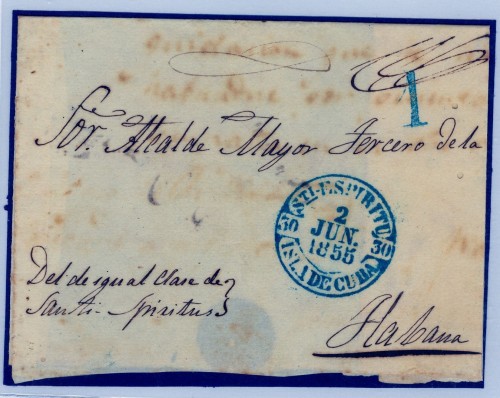 1
Sor. Alcalde Mayor Tercero de la
STI-ESPIRITU.
2
JUN.
1855
30 30
ISLA DE CUBA
Del de igual clase de
Santi-Spiritus
Habana